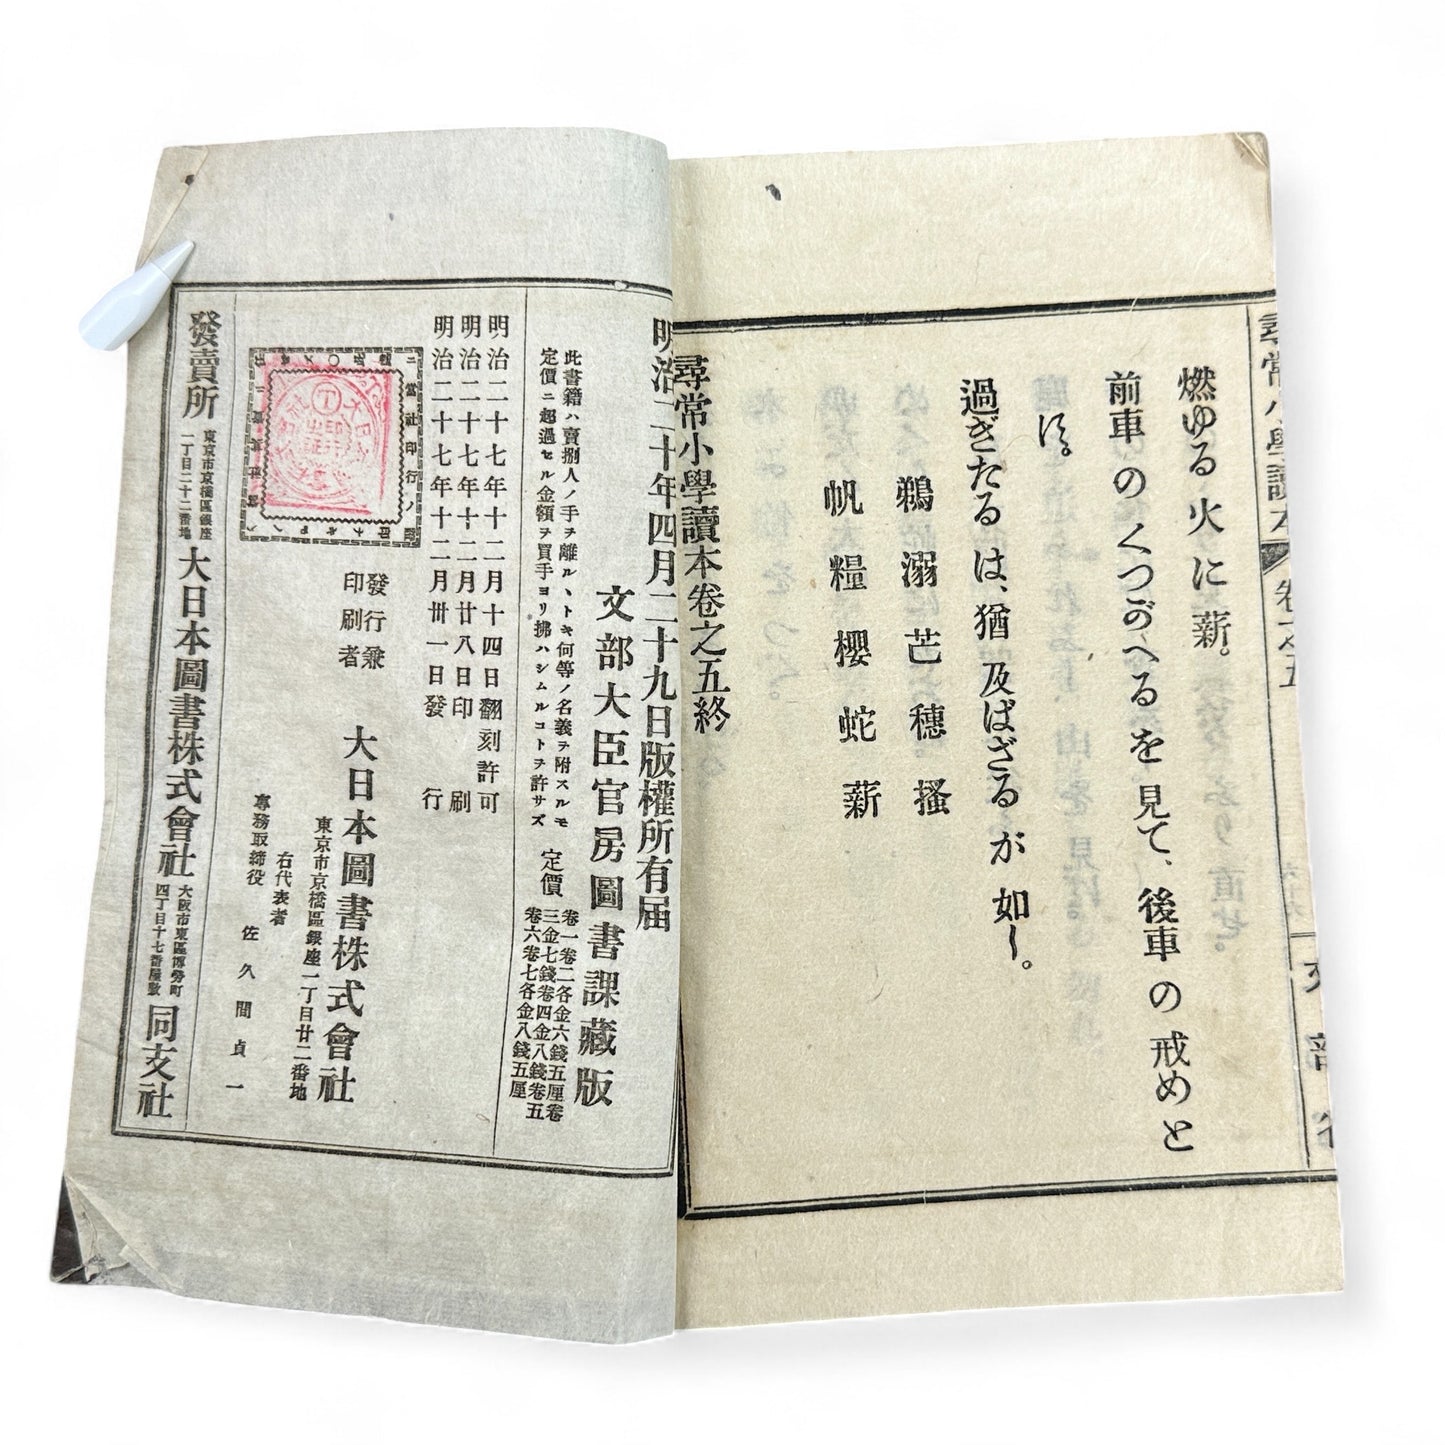 燃ゆる火に薪。
前車のくつがへるを見て、後車の戒めと
に。
過ぎたるは、猶及ばざるが如し。
鵜溺芒穗搔
帆糧櫻蛇薪
尋常小學讀本卷之五終
明治二十年四月二十九日版權所有届
文部大臣官房圖書課藏版
此書籍ハ賣捌人ノ手ヲ離ルヽトキ何等ノ名義ヲ附スルモ
定價ニ超過セル金額ヲ買手ヨリ拂ハシムルコトヲ許サズ
定價
卷一卷二各金六錢五厘卷
三金七錢卷四金八錢卷五
卷六卷七各金八錢五厘
明治二十七年十二月十四日翻刻許可
明治二十七年十二月廿八日印刷
明治二十七年十二月卅一日發行
發行兼
印刷者
大日本圖書株式會社
東京市京橋區銀座一丁目廿二番地
右代表者
專務取締役 佐久間貞一
發賣所
東京市京橋區銀座
一丁目二十二番地
大日本圖書株式會社
大阪市東區博勞町
四丁目十七番屋敷
同支社